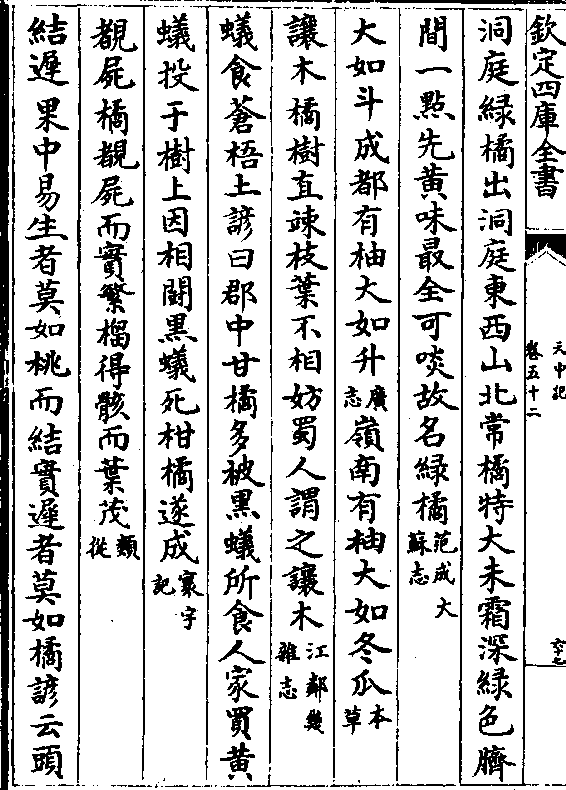 欽定四庫全書
天中記
卷五十二
六十七
洞庭綠橘出洞庭東西山北常橘特大未霜深綠色臍
間一點先黄味最全可啖故名綠橘范成大蘇志
大如斗成都有柚大如升廣志嶺南有柚大如冬瓜本草
讓木橘樹直竦枝葉不相妨蜀人謂之讓木江鄰幾雜志
蟻食蒼梧土諺曰郡中甘橘多被黒蟻所食人家買黄
蟻投于樹上因相鬭黒蟻死柑橘遂成寰宇記
覩屍橘覩屍而實繁榴得骸而葉茂類從
結遲果中易生者莫如桃而結實遲者莫如橘諺云頭